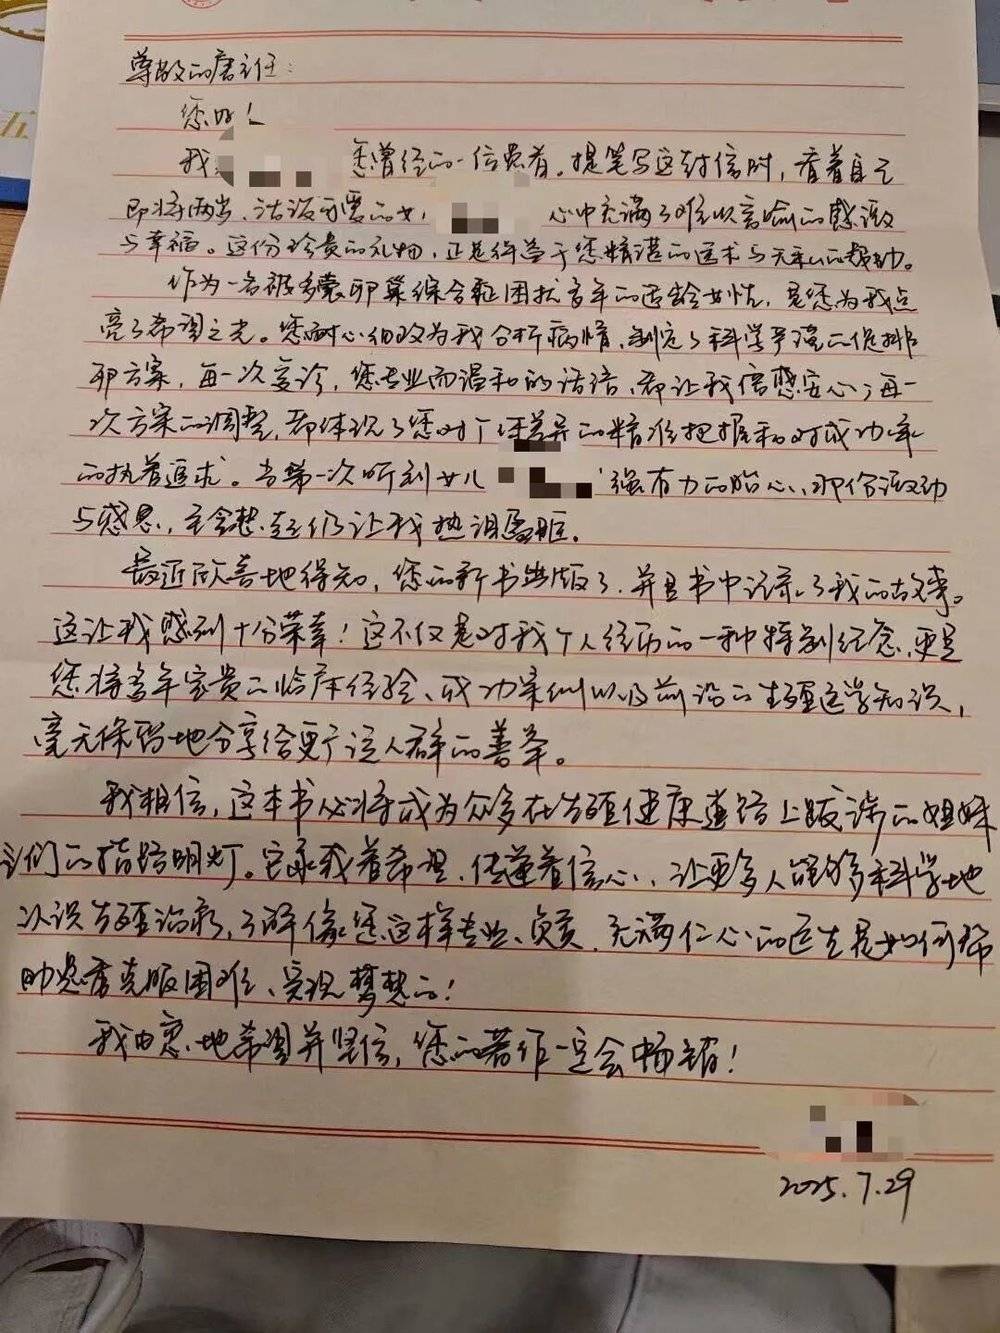 尊敬的唐主任：
您好！
我 您曾经的一位患者。提笔写这封信时，看着自己
即将两岁、活泼可爱的女 心中充满了难以言喻的感激
与幸福。这份珍贵的礼物，正是得益于您精湛的医术与无私的帮助。
作为一名被多囊卵巢综合症困扰多年的适龄女性，是您为我点
亮了希望之光。您耐心细致为我分析病情，制定了科学严谨的促排
卵方案，每一次复诊，您专业而温和的话语，都让我倍感安心；每一
次方案的调整，都体现了您对个体差异的精准把握和对成功率
的执着追求。当第一次听到女儿 强有力的胎心，那份激动
与感恩，至今想起仍让我热泪盈眶。
最近欣喜地得知，您的新书出版了，并且书中记录了我的故事。
这让我感到十分荣幸！这不仅是对我个人经历的一种特别纪念，更是
您将多年宝贵的临床经验、成功案例以及前沿的生殖医学知识，
毫无保留地分享给更广泛人群的善举。
我相信，这本书必将成为众多在生殖健康道路上跋涉的姐妹
们的指路明灯。它承载着希望，传递着信心，让更多人能够科学地
认识生殖治疗，了解像您这样专业、负责、充满仁心的医生是如何帮
助患者克服困难、实现梦想的！
我由衷地希望并坚信，您的著作一定会畅销！
2025.7.29